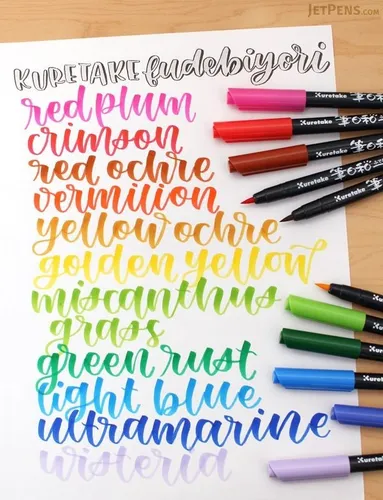 JetPens.com
KURETAKE fudebiyori
red plum
crimson
red ochre
vermilion
yellow ochre
golden yellow
miscanthus
grass
green rust
light blue
ultramarine
wisteria
Kuretake 筆日和
Kuretake 筆日和
Kuretake 筆日和
Kuretake 筆日和
Kuretake 筆日和
Kuretake
Kuretake
Kuretake
Kuretake
Kuretake